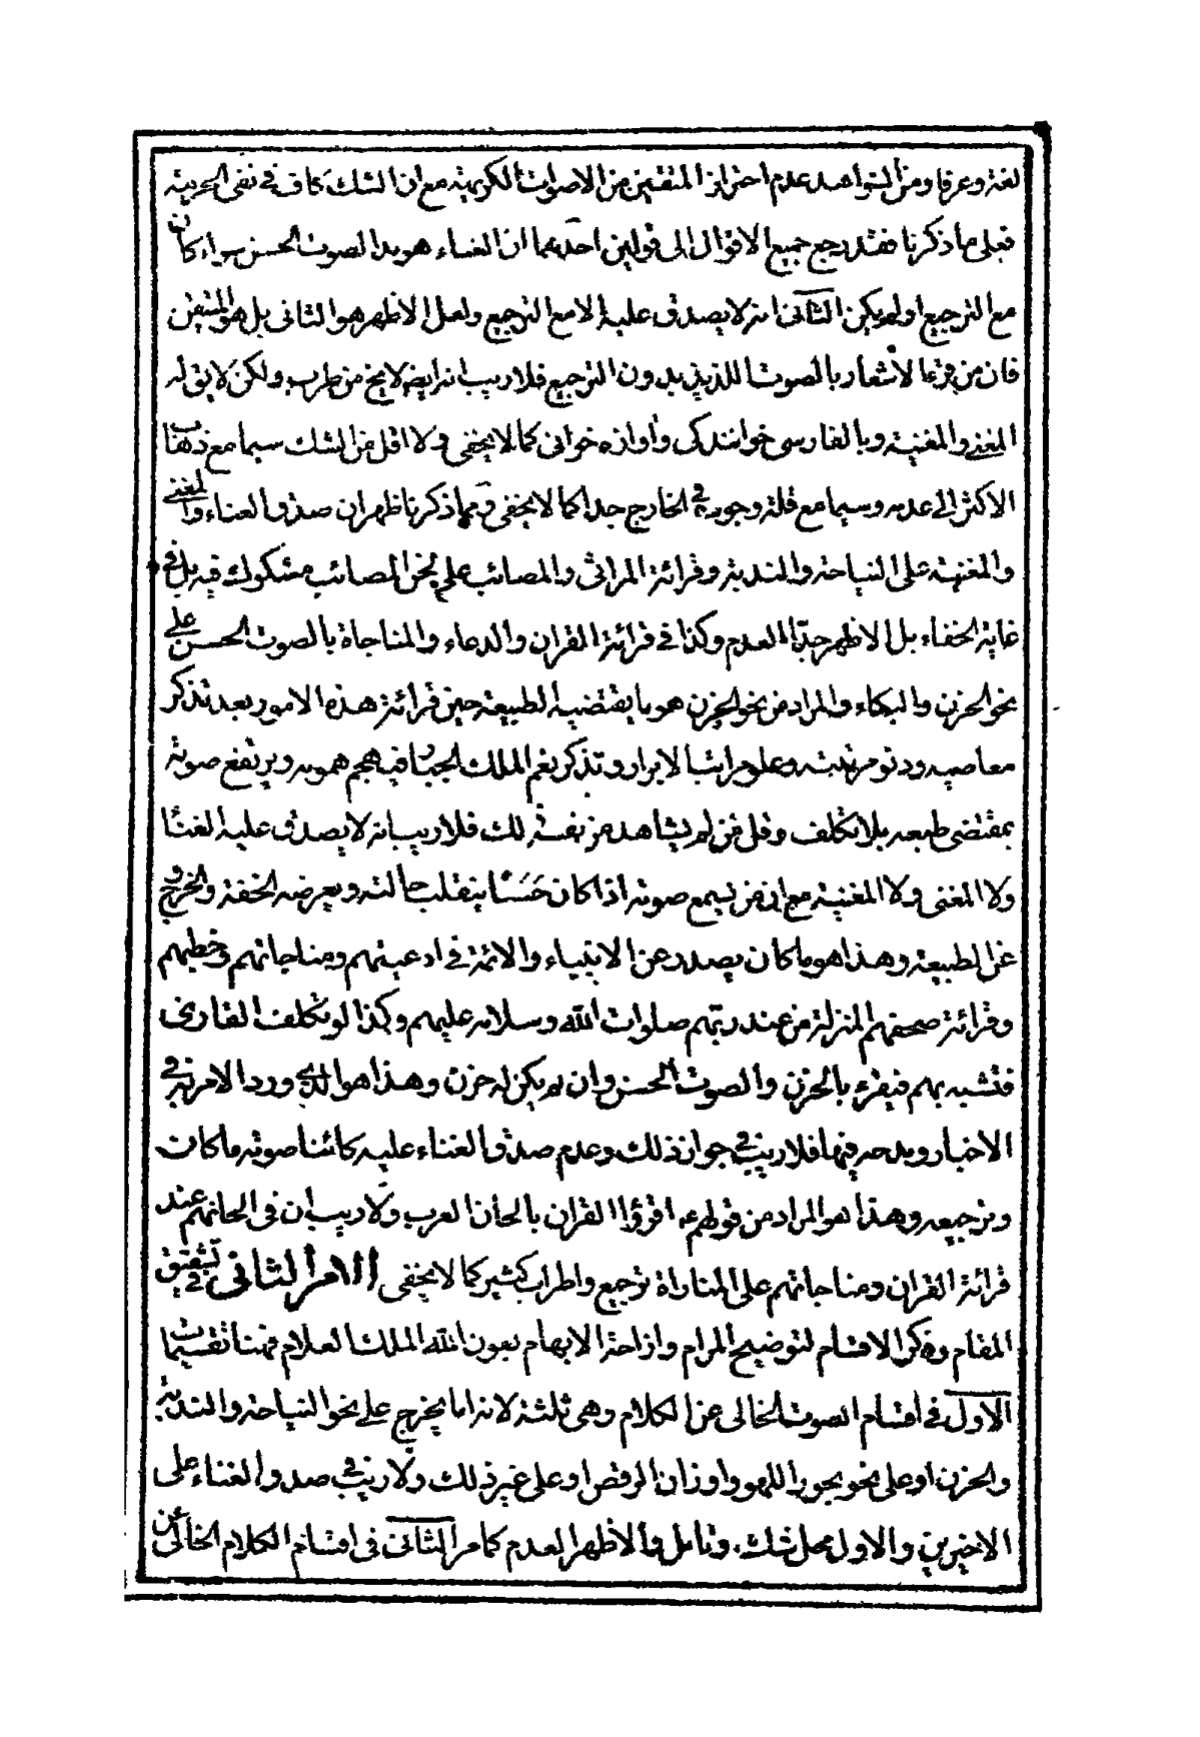 لغة وعرفا ومن الشواهد عدم احتراز المتقين من الاصوات الكريهة مع ان الشك كاف في نفي الحرمة
فعلى ما ذكرنا فقد رجع جميع الاقوال الى قولين احدهما ان الغناء هو مد الصوت الحسن سواء كان
مع الترجيع او لم يكن الثاني انه لا يصدق عليه الا مع الترجيع ولعل الاظهر هو الثاني بل هو المتيقن
فان من قرء الاشعار بالصوت اللذيذ بدون الترجيع فلا ريب انه ايضا لا يخ من طرب ولكن لا يق له
المغني والمغنية وبالفارسي خوانندكى وآوازه خوانى كما لا يخفى ولا اقل من الشك سيما مع ذهاب
الاكثر الى عدمه وسيما مع قلة وجوده في الخارج جدا كما لا يخفى ومما ذكرنا ظهر ان صدق الغناء والمغني
والمغنية على النياحة والندبة وقرائة المراثي والمصائب على نحو المصائب مشكوك فيه بل في
غاية الخفاء بل الاظهر جدا العدم وكذا في قرائة القران والدعاء والمناجاة بالصوت الحسن على
نحو الحزن والبكاء والمراد من نحو الحزن هو ما يقتضيه الطبيعة حين قرائة هذه الامور بعد تذكر
معاصيه ودنو مرتبته وعلو مراتب الابرار وتذكر نعم الملك الجبار فيهجم همومه ويرتفع صوته
بمقتضى طبعه بلا تكلف وقل من لم يشاهد من نفسه ذلك فلا ريب انه لا يصدق عليه الغناء
ولا المغني ولا المغنية مع ان من يسمع صوته اذا كان حسنا ينقلب حالته ويعرضه الخفة والخروج
عن الطبيعة وهذا هو ما كان يصدر عن الانبياء والائمة في ادعيتهم ومناجاتهم وخطبهم
وقرائة صحفهم المنزلة من عند ربهم صلوات الله وسلامه عليهم وكذا لو تكلف القارى
فتشبه بهم فيقرء بالحزن والصوت الحسن وان لم يكن له حزن وهذا هو الذي ورد الامر به في
الاخبار ومدحه فيها فلا ريب في جواز ذلك وعدم صدق الغناء عليه كائنا صوته ما كان
وترجيعه وهذا هو المراد من قولهم ع اقرؤا القران بالحان العرب ولا ريب ان في الحانهم عند
قرائة القران ومناجاتهم على المناراة ترجيع واطراب كثير كما لا يخفى الامر الثاني في تشقيق
المقام وذكر الاقسام لتوضيح المرام وازاحة الابهام بعون الله الملك العلام فهنا تقسيمات
الاول في اقسام الصوت الخالي عن الكلام وهي ثلثة لانه اما يخرج على نحو النياحة والندبة
والحزن او على نحو بحور اللهو واوزان الرقص او على غير ذلك ولا ريب في صدق الغناء على
الاخيرين والاول محل شك وتامل والاظهر العدم كما مر الثاني في اقسام الكلام الخالي عن